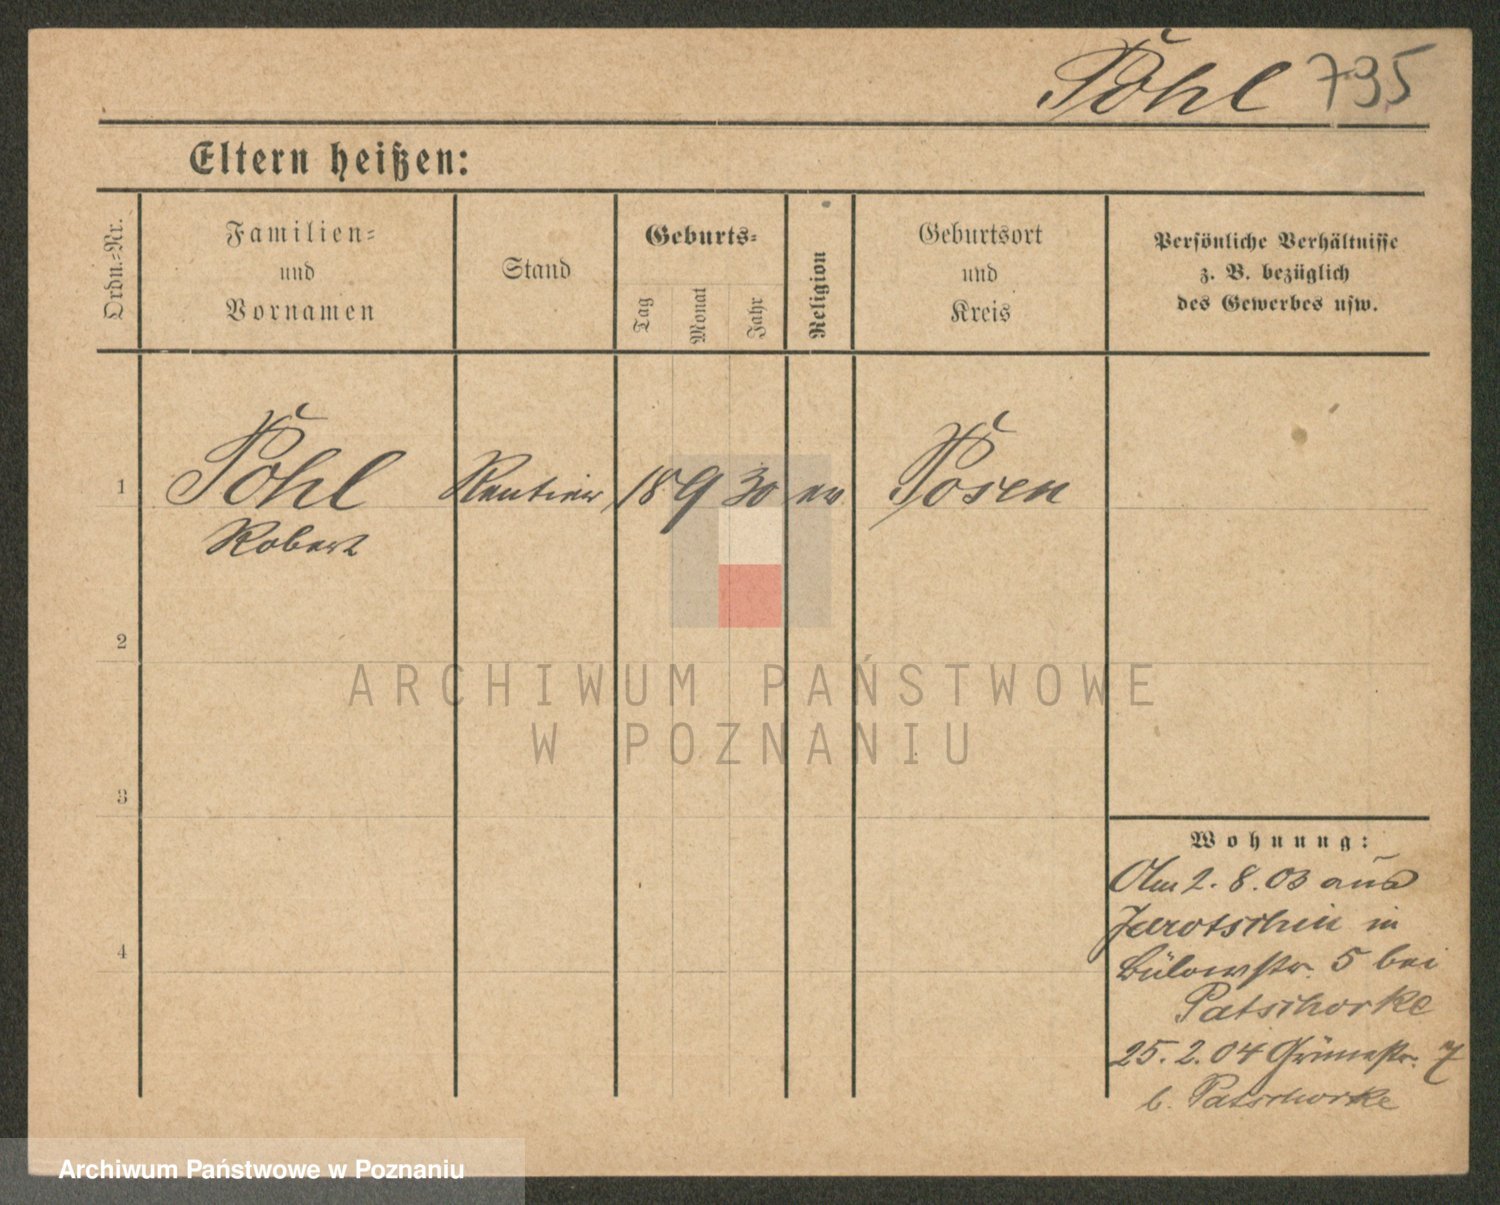 Pohl 795
Eltern heißen:
Ordn.-Nr.
Familien-
und
Vornamen
Stand
Geburts-
Tag
Monat
Jahr
Religion
Geburtsort
und
Kreis
Persönliche Verhältnisse
z. B. bezüglich
des Gewerbes usw.
1 Pohl Rentier 18 9 30 ev. Posen
Robert
2
ARCHIWUM PAŃSTWOWE
W POZNANIU
3
Wohnung:
Am 2. 8. 03 aus
Jarotschin in
Bülowstr. 5 bei
Patschorke
4
25. 2. 04 Grünestr. 7
b. Patschorke
Archiwum Państwowe w Poznaniu